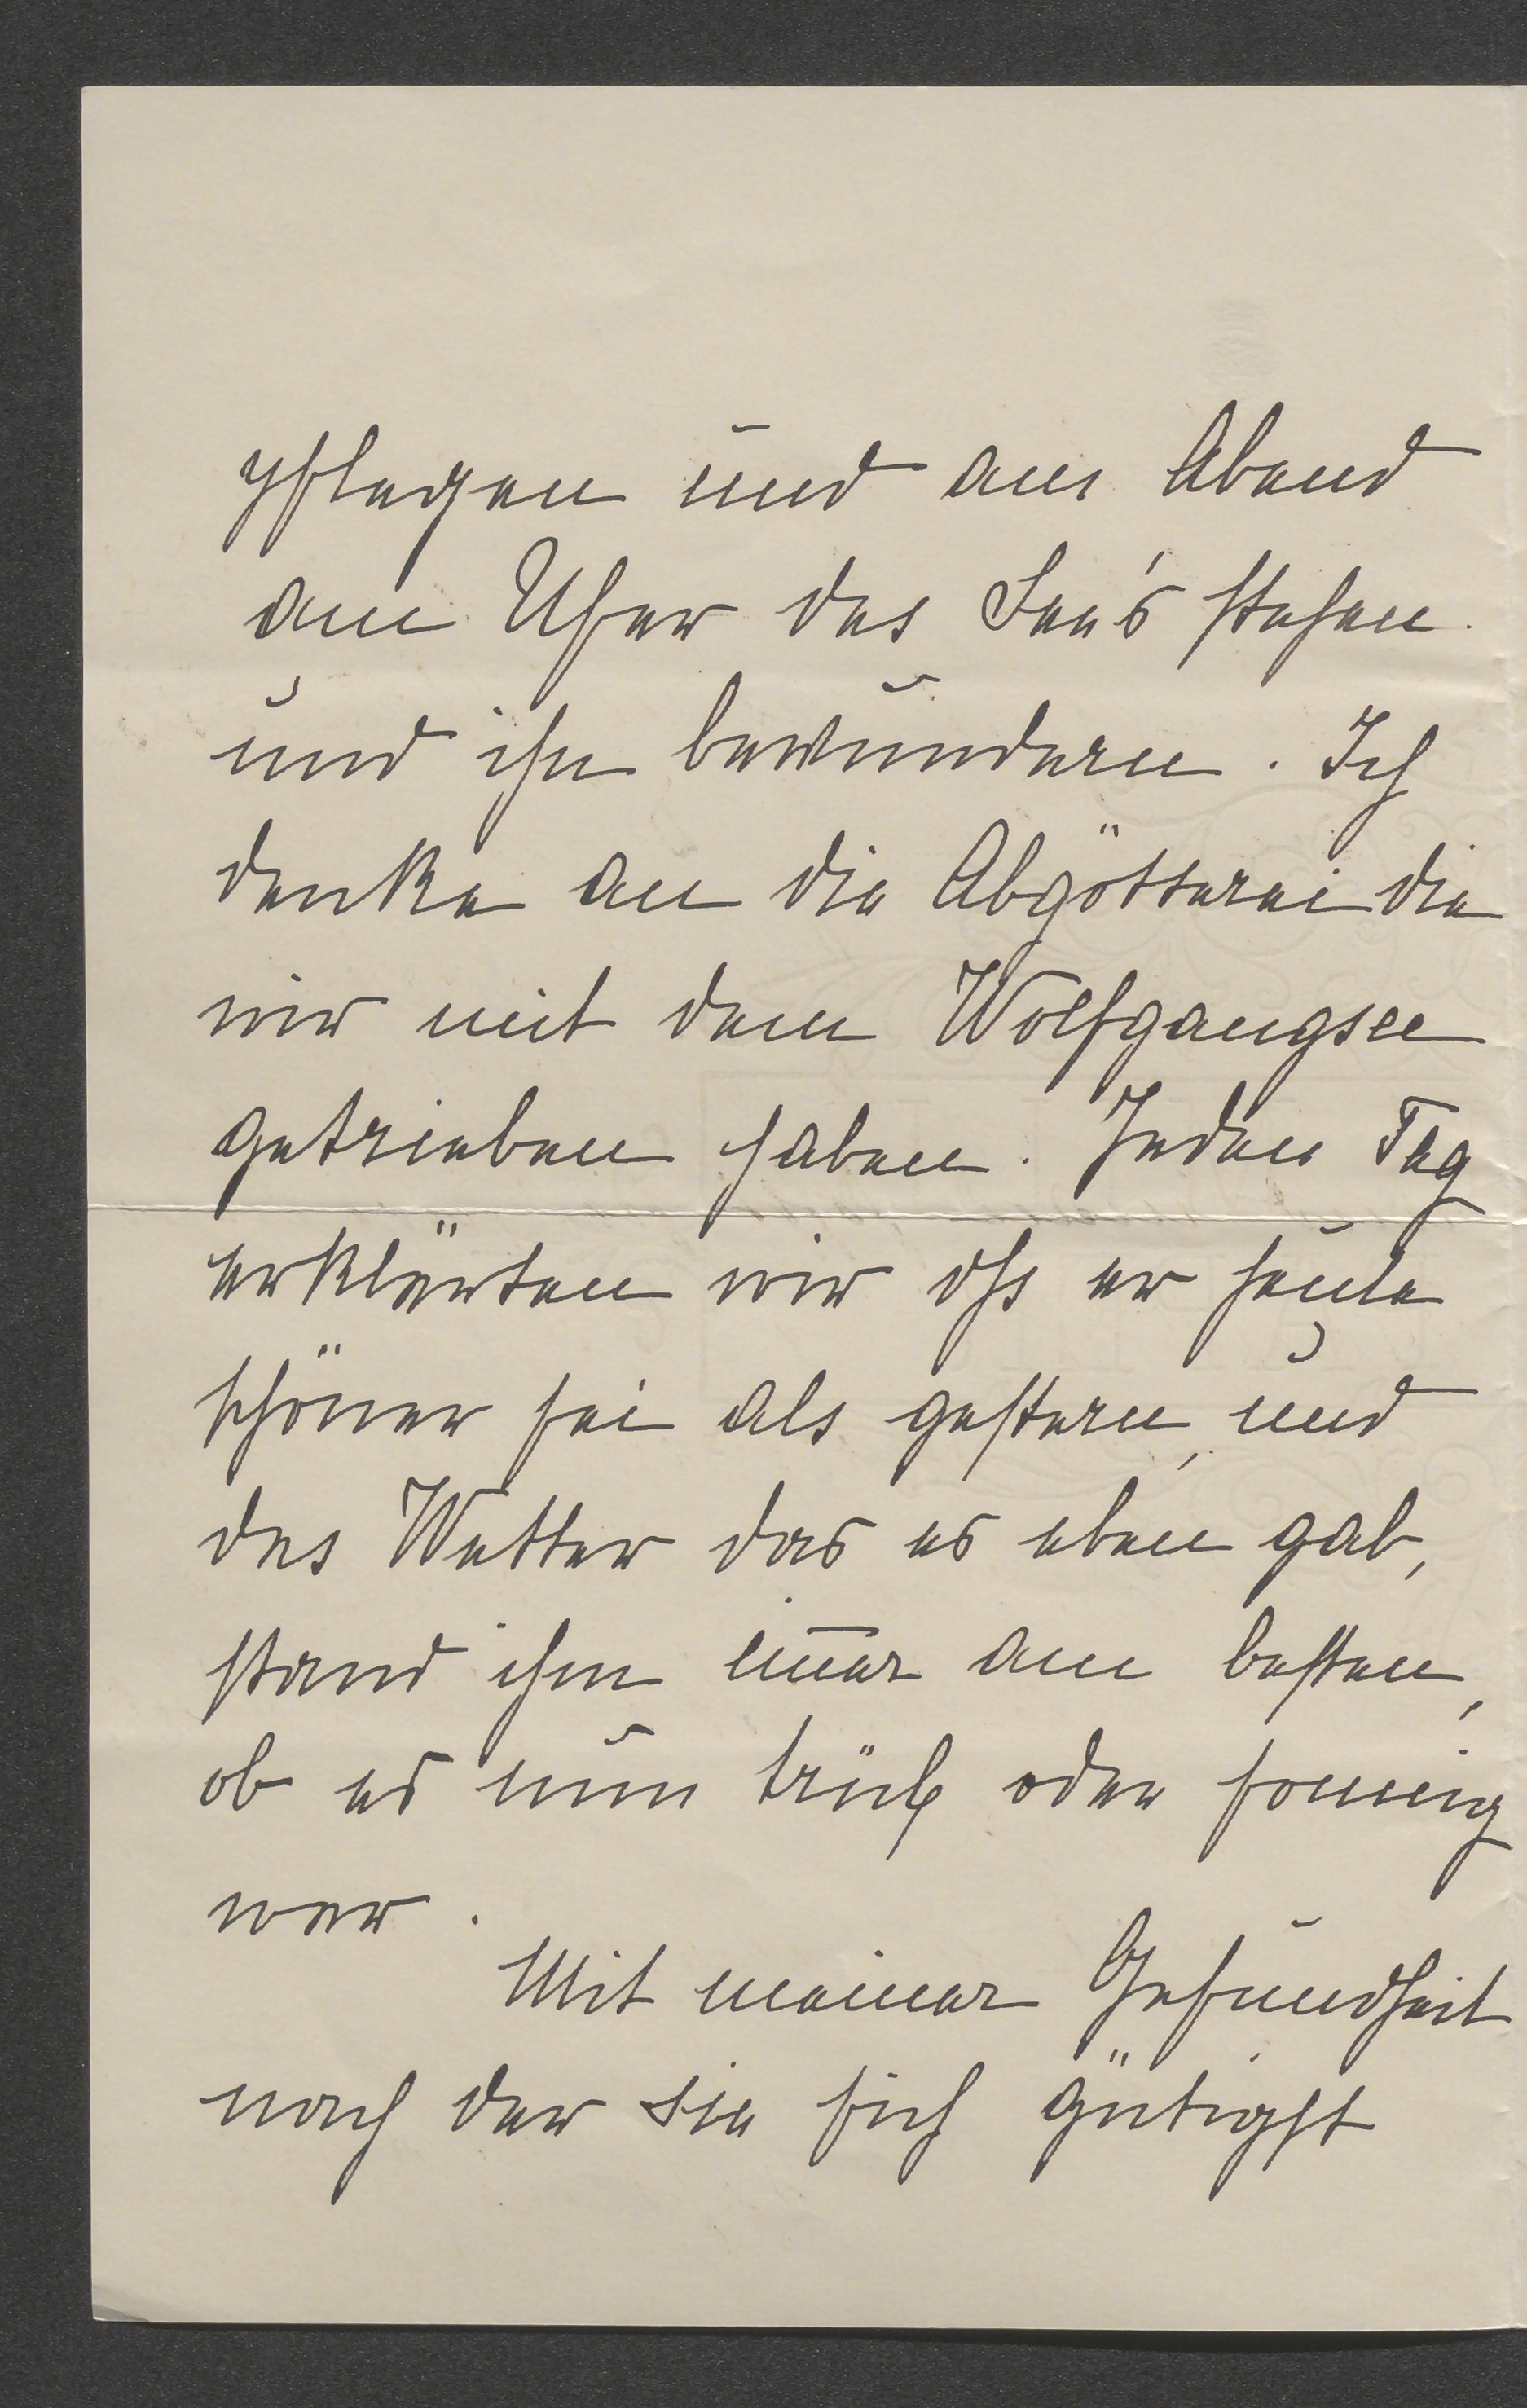 pflegen und am Abend
am Ufer des See's stehen
und ihn bewundern. Ich
denke an die Abgötterei die
wir mit dem Wolfgangsee
getrieben haben. Jeden Tag
erklärten wir dſs er heute
schöner sei als gestern, und
das Wetter das es eben gab,
stand ihm im̅er am besten,
ob es nun trüb oder sonnig
war.
Mit meiner Gesundheit
nach der Sie sich gütigst